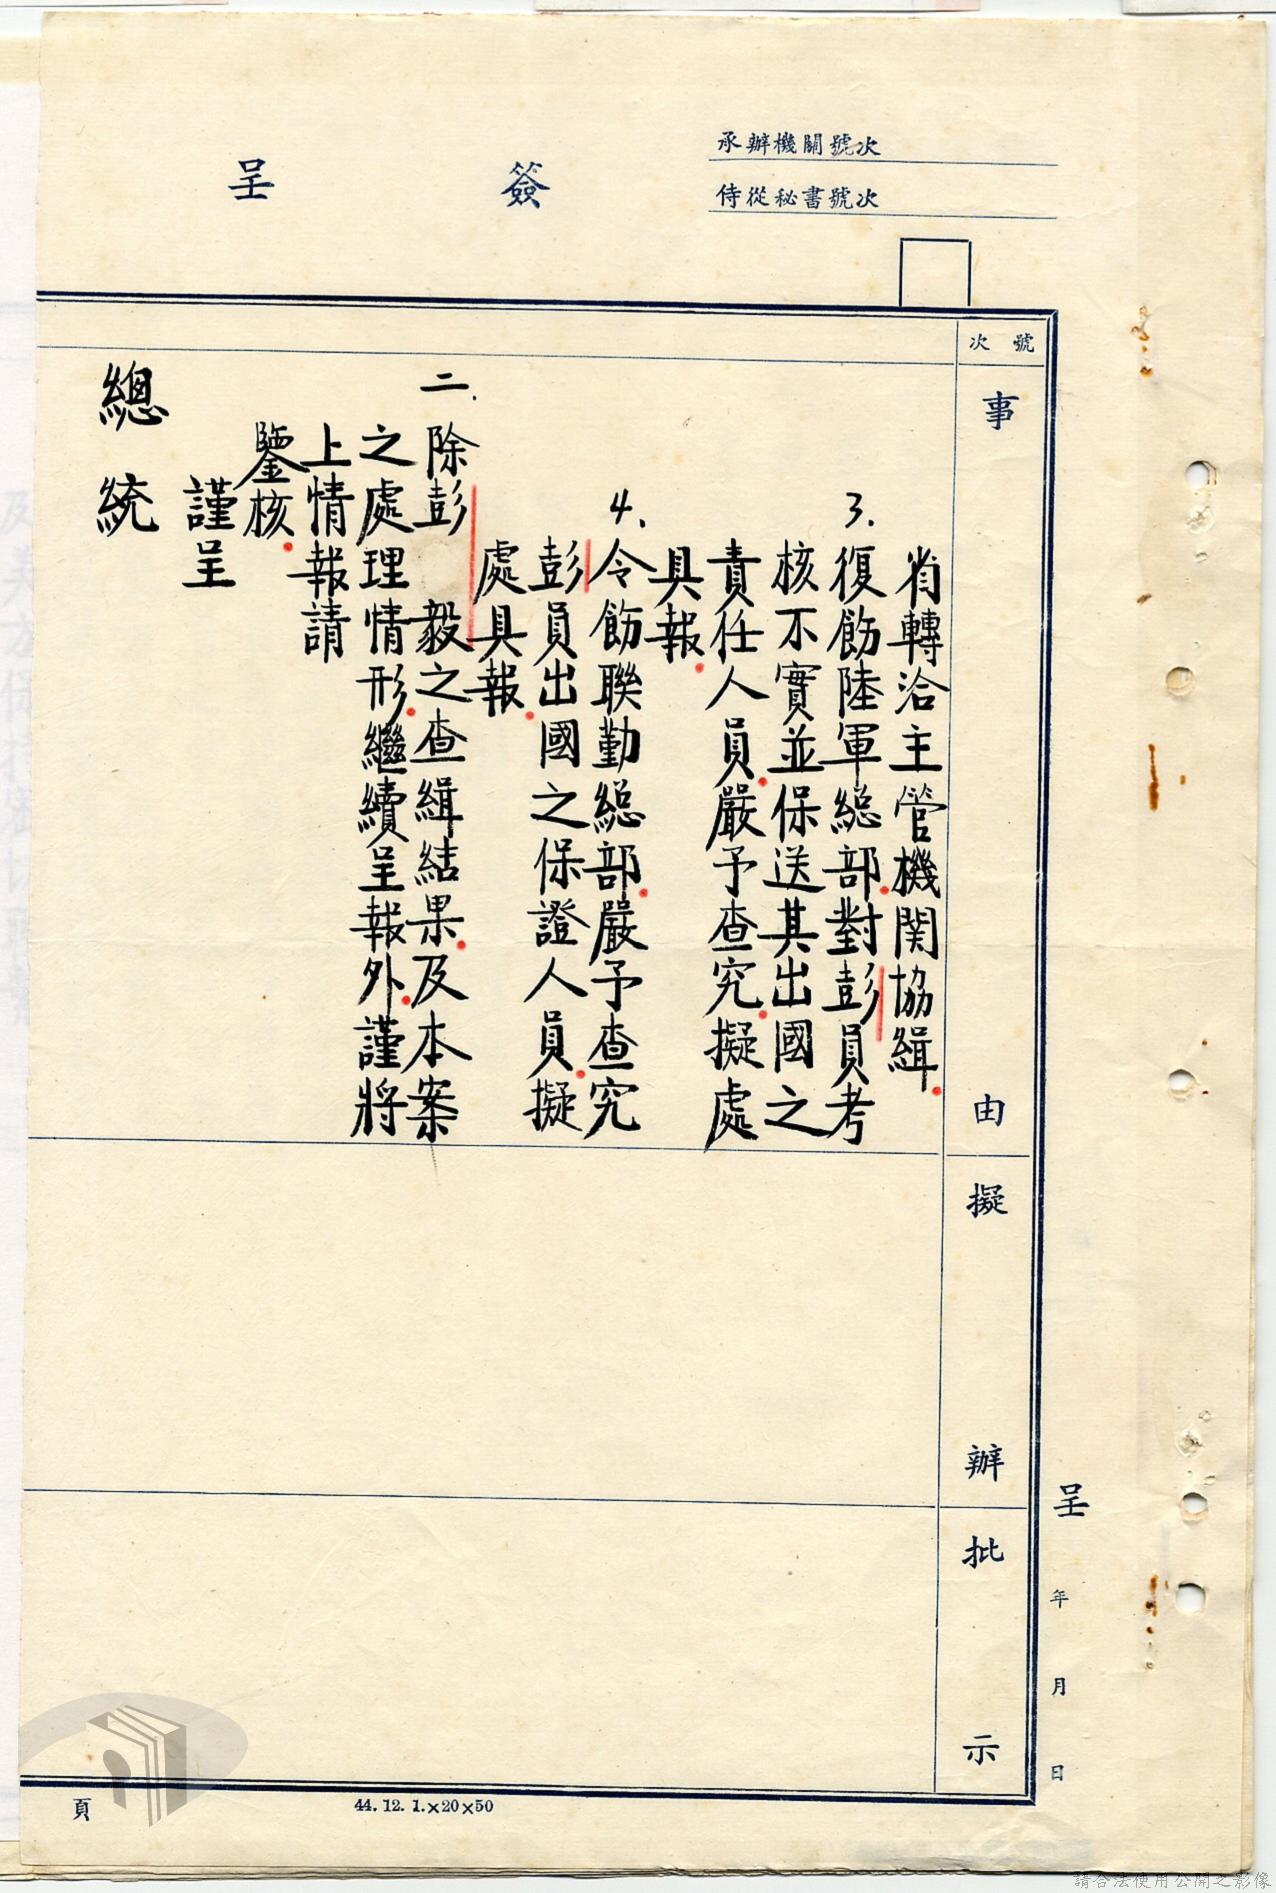 承辦機關號次
侍從秘書號次
簽呈
號次
事由
擬辦
批示
呈 年 月 日
省轉洽主管機関協緝.
3. 復飭陸軍總部.對彭員考
核不實並保送其出國之
責任人員.嚴予查究.擬處
具報.
4. 令飭聯勤總部.嚴予查究
彭員出國之保證人員.擬
處具報.
二. 除彭 毅之查緝結果.及本案
之處理情形.繼續呈報外.謹將
上情報請
鑒核.
謹呈
總統
頁
44.12.1.×20×50
請合法使用公開之影像